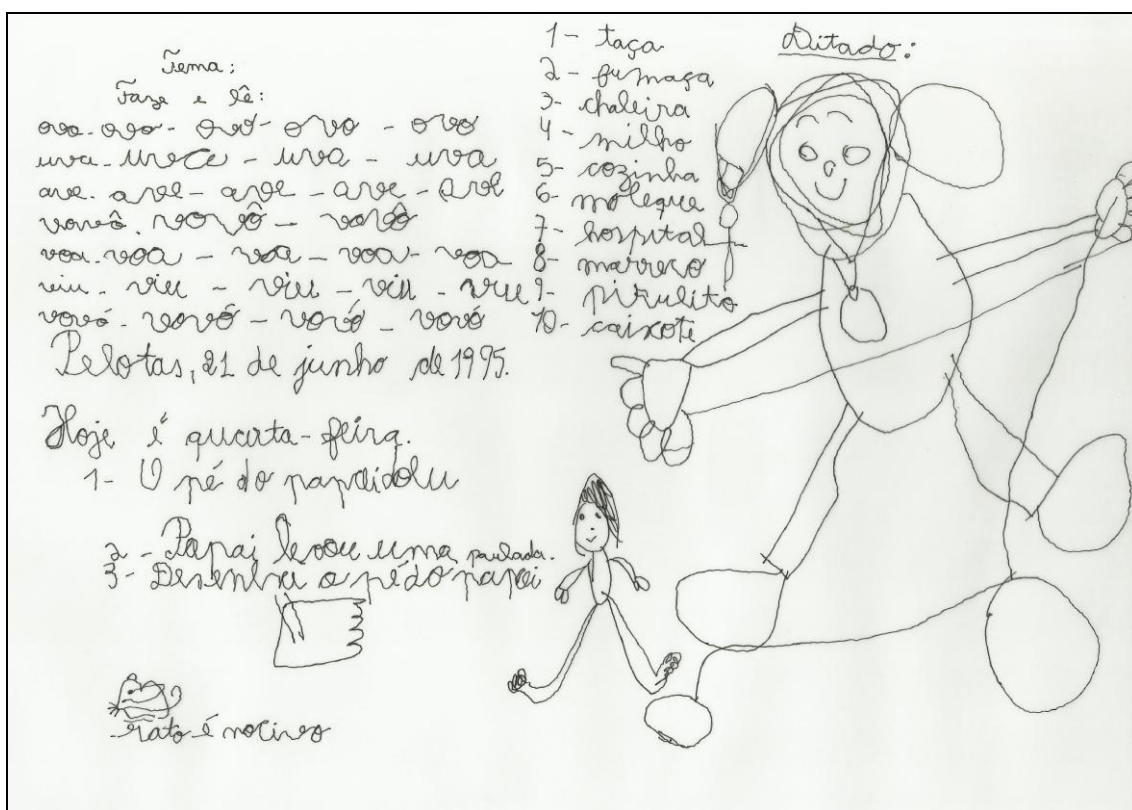 Tema:
Faze e lê:
ovo - ovo - ovo - ovo - ovo
uva - uva - uva - uva
ave - ave - ave - ave - ave
vovô - vovô - vovô
voa - voa - voa - voa - voa
viu - viu - viu - viu - viu
vovó - vovó - vovó - vovó
Pelotas, 21 de junho de 1995.
Hoje é quarta-feira.
1- O pé do papai
2- Papai levou uma paulada.
3- Desenha o pé do papai
rato é nocivo
Ditado:
1- taça
2- fumaça
3- chaleira
4- milho
5- cozinha
6- moleque
7- hospital
8- marreco
9- pirulito
10- caixote